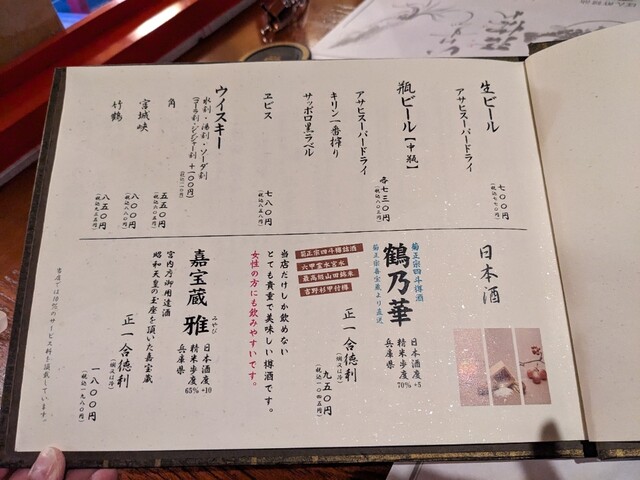 生ビール
アサヒスーパードライ
七〇〇円
(税込七七〇円)
瓶ビール【中瓶】
各七三〇円
(税込八〇三円)
アサヒスーパードライ
キリン一番搾り
サッポロ黒ラベル
ヱビス
七八〇円
(税込八五八円)
ウイスキー
水割・湯割・ソーダ割
(コーラ割・ジンジャー割+一〇〇円)
角
五五〇円
(税込六〇五円)
宮城峡
八〇〇円
(税込八八〇円)
竹鶴
八五〇円
(税込九三五円)
日本酒
菊正宗四斗樽酒
鶴乃華
菊正宗嘉宝蔵より直送
日本酒度 +5
精米歩度 70%
兵庫県
正一合徳利
(燗又は冷)
九五〇円
(税込一〇四五円)
菊正宗四斗樽詰酒
六甲霊水宮水
最高級山田錦米
吉野杉甲付樽
当店だけしか飲めない
とても貴重で美味しい樽酒です。
女性の方にも飲みやすいです。
嘉宝蔵 雅
みやび
日本酒度 +10
精米歩度 65%
兵庫県
宮内庁御用達酒
昭和天皇の玉座を頂いた嘉宝蔵
正一合徳利
(燗又は冷)
一八〇〇円
(税込一九八〇円)
当店では別途のサービス料を頂戴しています。